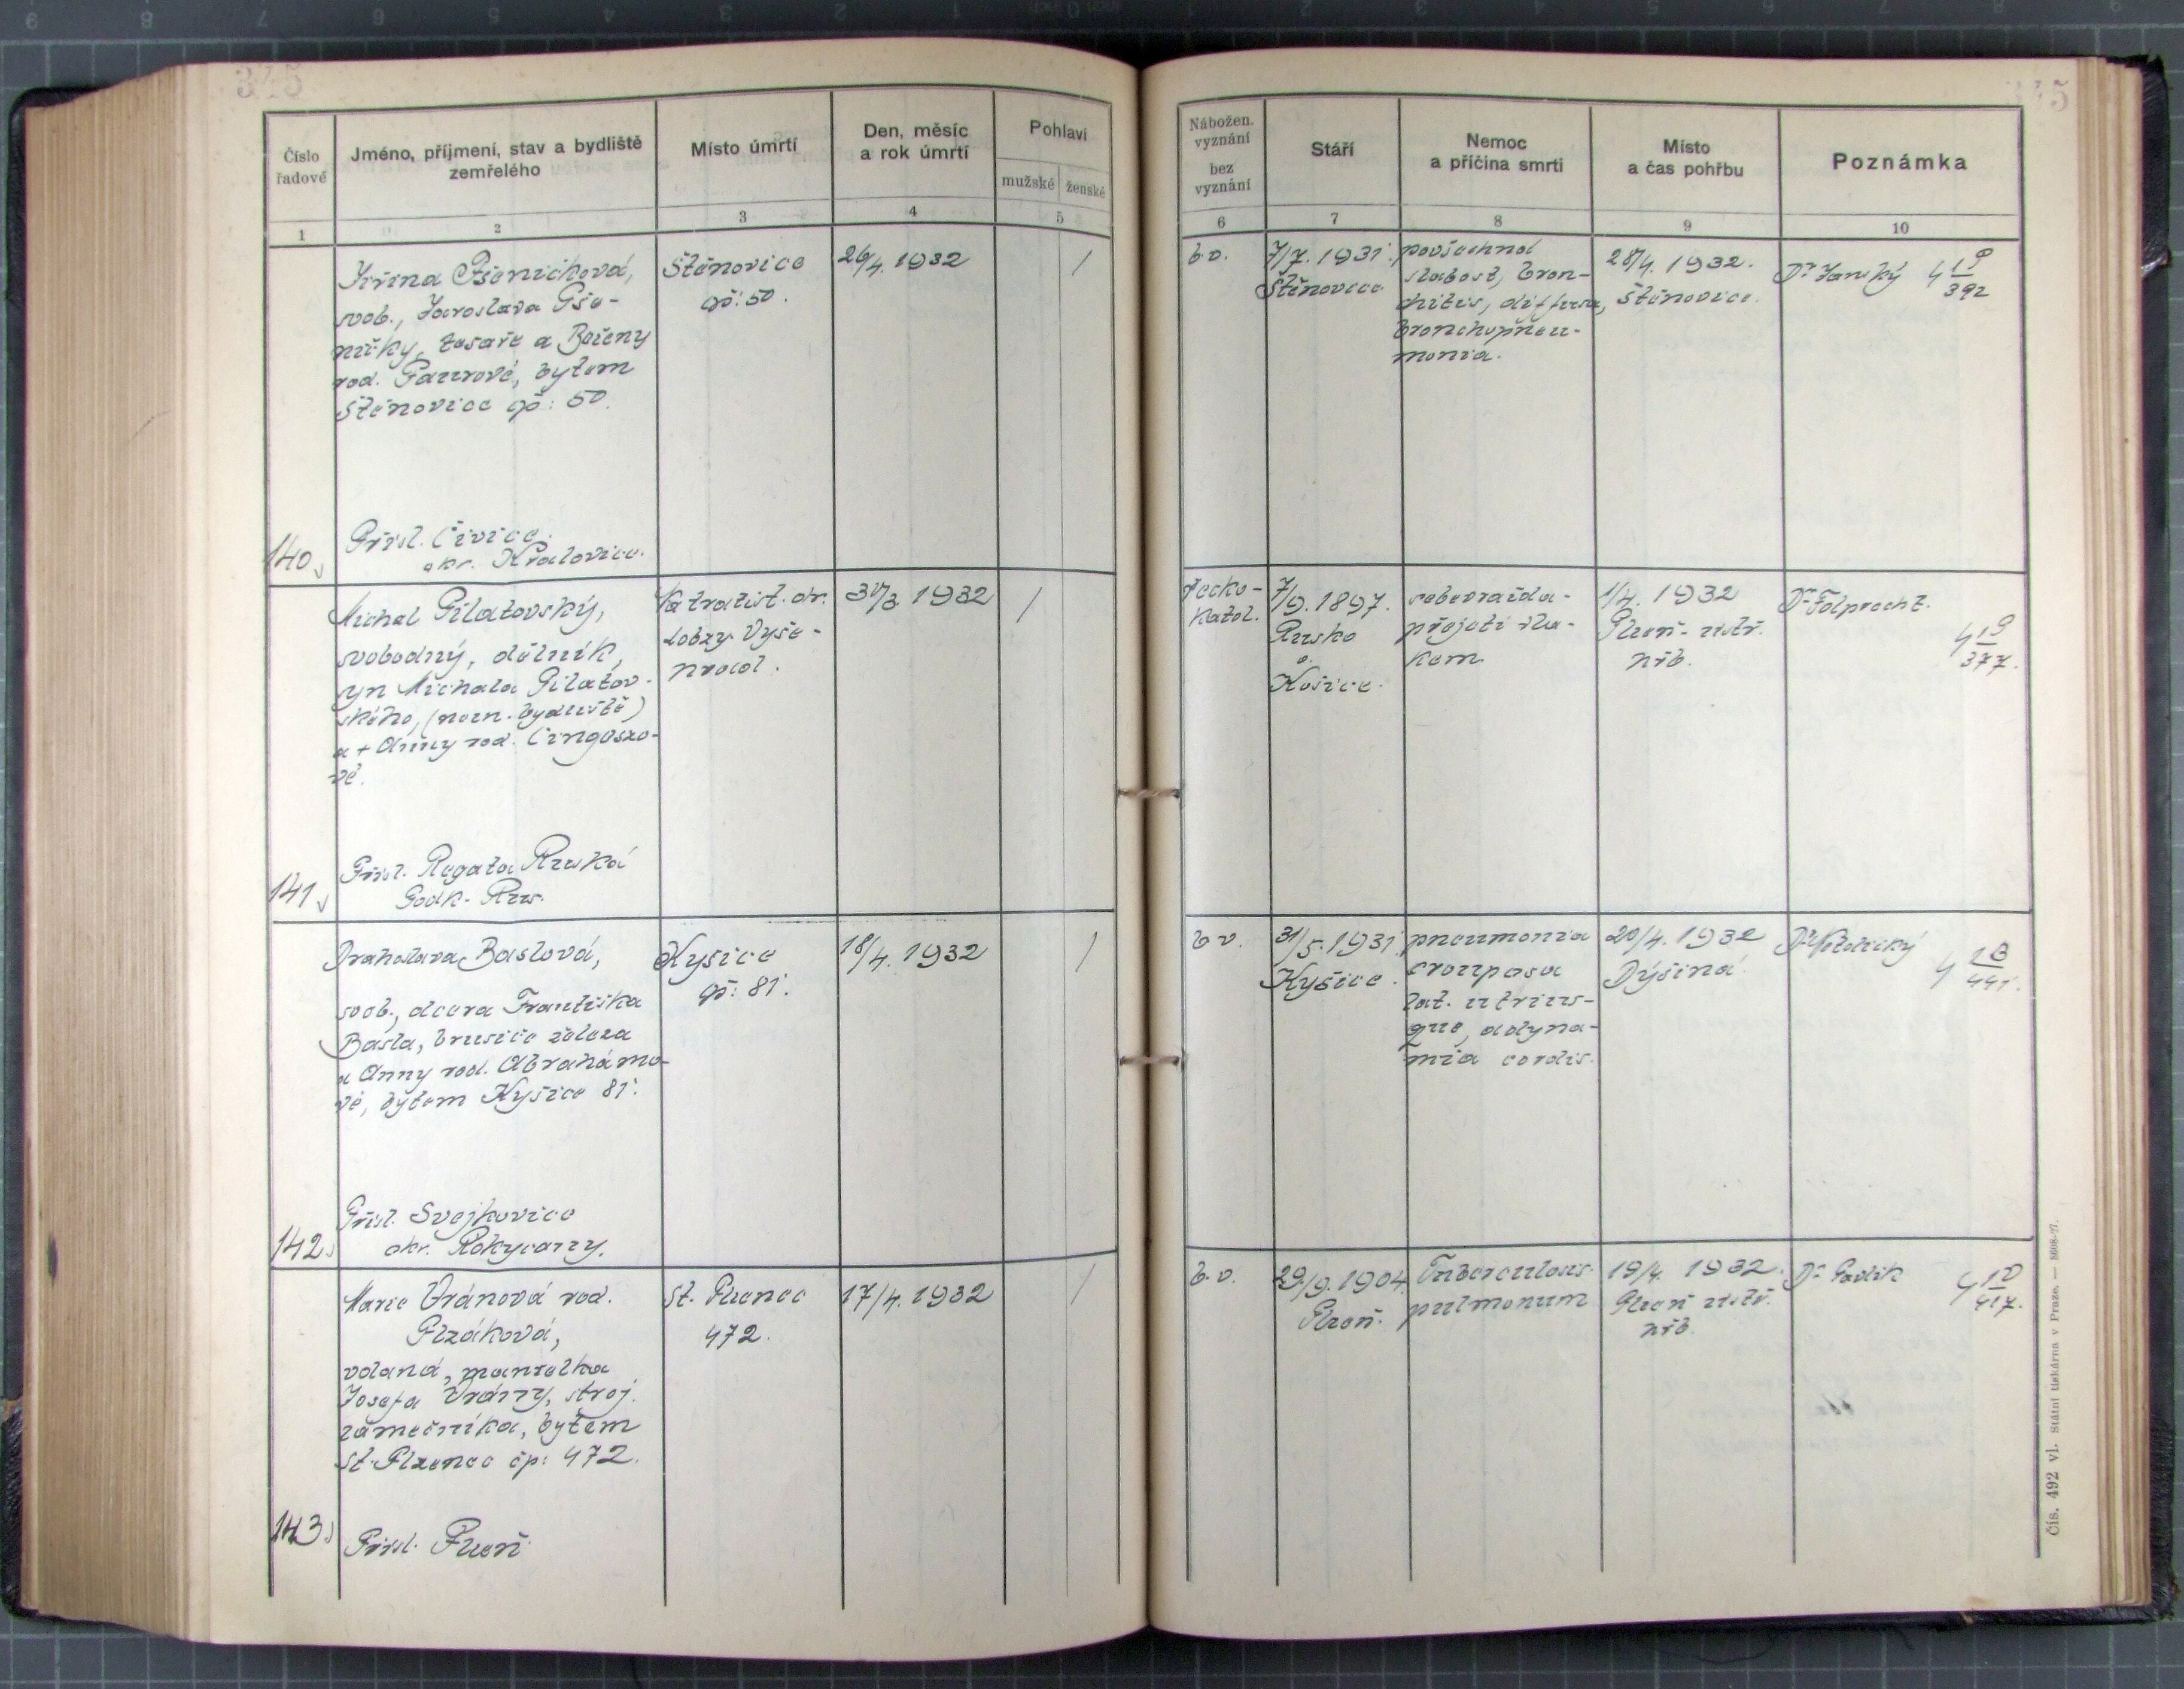 375
Číslo
řadové
Jméno, příjmení, stav a bydliště
zemřelého
Místo úmrtí
Den, měsíc
a rok úmrtí
Pohlaví
mužské
ženské
1
2
3
4
5
Jiřina Pšeničková,
svob., Jaroslava Pše-
ničky, tesaře a Boženy
rod. Paurové, bytem
Štěnovice čp: 50.
Přísl. Čivice.
okr. Kralovice.
140
Štěnovice
čp: 50.
26/4. 1932
/
Michal Pilatovský,
svobodný, dělník,
syn Michala Pilatov-
ského, (nezn. bydliště)
a + Anny rod. Cingoszo-
vé.
Přísl. Regata Ruská
Podk. Rus.
141
Ka trati st. dr.
Lobzy Vyše-
hrad.
31/3. 1932
/
Drahoslava Baslová,
svob., dcera Františka
Basla, brusiče železa
a Anny rod. Abrahámo-
vé, bytem Kyšice 81.
Přísl. Svejkovice
okr. Rokycany.
142
Kyšice
čp: 81.
18/4. 1932
/
Marie Vránová rod.
Plzáková,
vdaná, manželka
Josefa Vrány, stroj.
zámečníka, bytem
St. Plzenec čp: 472.
Přísl. Plzeň
143
St. Plzenec
472.
17/4. 1932
/
Nábožen.
vyznání
bez
vyznání
Stáří
Nemoc
a příčina smrti
Místo
a čas pohřbu
Poznámka
6
7
8
9
10
b.v.
7/7. 1931.
Štěnovice
povšechná
slabost, bron-
chitis, diffusa,
bronchopneu-
monia.
28/4. 1932.
Štěnovice.
Dr Janský
4 19
392
řecko-
katol.
7/9. 1897.
Rusko
o.
Košice.
sebevražda-
přejetí vla-
kem.
1/4. 1932
Plzeň - ústř.
hřb.
Dr Folprecht.
4 19
377.
b v.
31/5. 1931
Kyšice.
pneumonia
crouposa
lat. utrius-
que, adyna-
mia cordis.
20/4. 1932
Dýšina
4 18
441.
b.v.
29/9. 1904.
Plzeň.
Tuberculosis
pulmonum
19/4. 1932.
Plzeň ústř.
hřb.
Dr Pavlík
4 10
417.
Čís. 492 vl. státní tiskárna v Praze. — 8608-27.